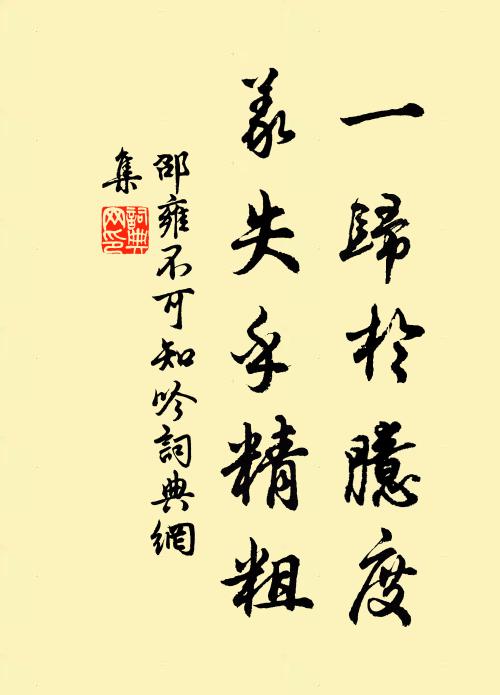 一歸於臆度
義失乎精粗
邵雍不可知吟詞典網
集
詞典
网印